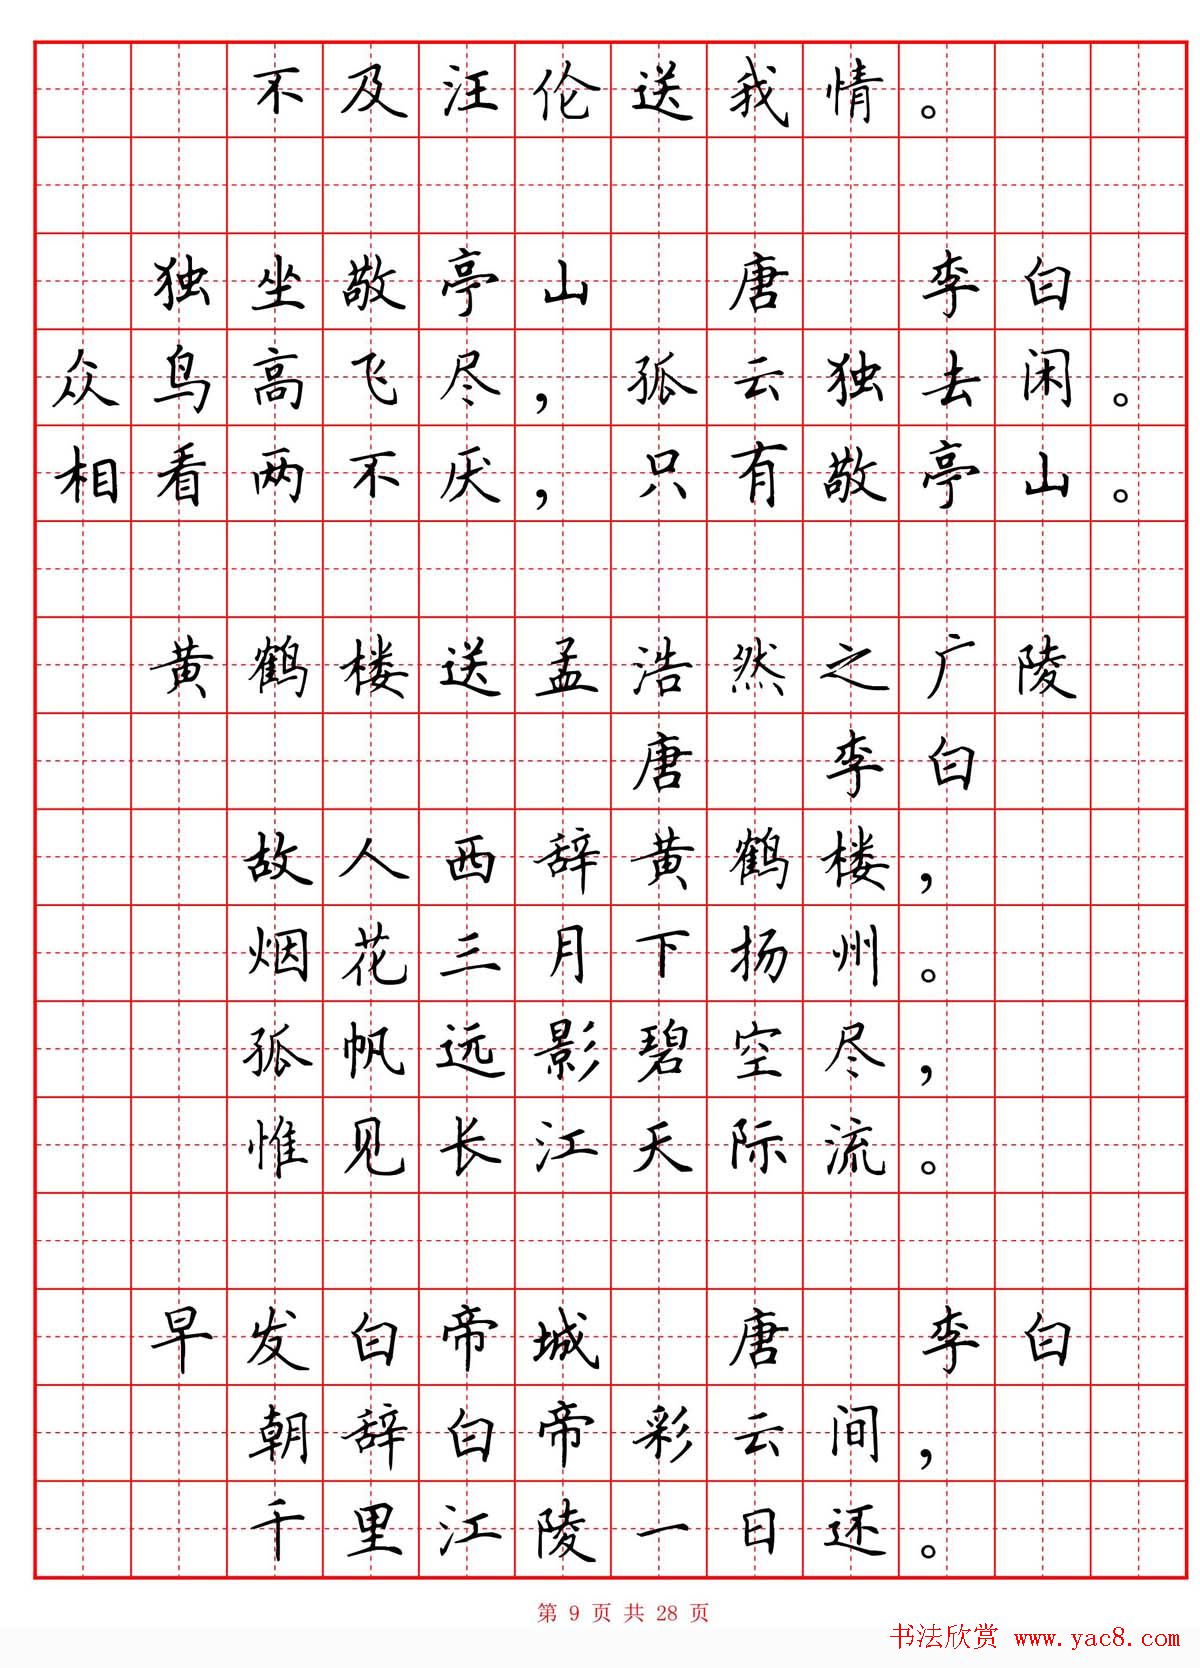 不及汪伦送我情。
独坐敬亭山 唐 李白
众鸟高飞尽，孤云独去闲。
相看两不厌，只有敬亭山。
黄鹤楼送孟浩然之广陵
唐 李白
故人西辞黄鹤楼，
烟花三月下扬州。
孤帆远影碧空尽，
惟见长江天际流。
早发白帝城 唐 李白
朝辞白帝彩云间，
千里江陵一日还。
第 9 页 共 28 页
书法欣赏 www.yac8.com